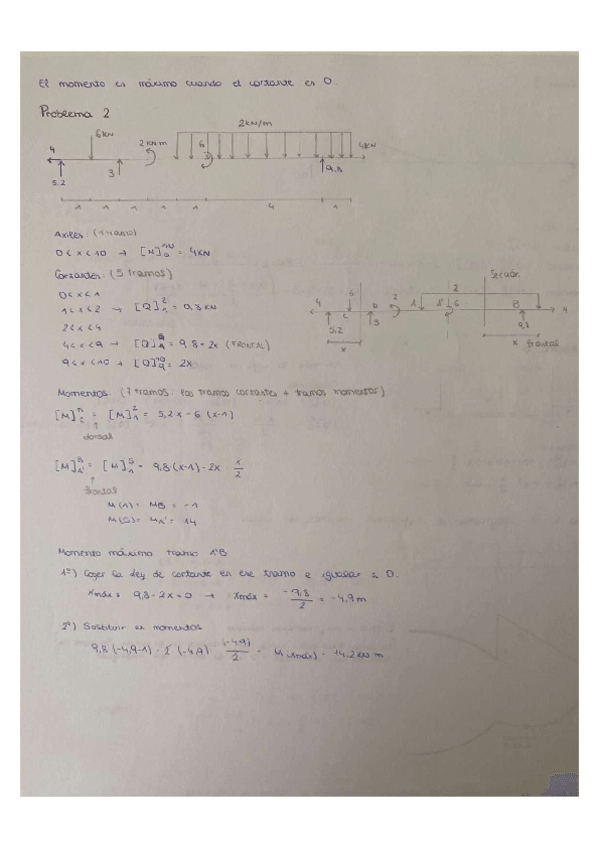 El momento es máximo cuando el cortante es 0.
Problema 2
2kN/m
6kN
2 kN·m
4
6
4kN
3
9,8
5,2
1 1 1 1 1 4 1
Axiles: (1 tramo)
0 < x < 10 → [N]₀¹⁰ = 4KN
Cortantes: (5 tramos)
0 < x < 1
1 < x < 2 → [Q]₁²
2 < x < 4
4 < x < 9 → = 9,8 - 2x (FRONTAL)
9 < x < 10 → = 2x
Sección
2
6
4
C
D
2
A
A'
6
B
4
5,2
3
9,8
x
x frontal
Momentos: (7 tramos: los tramos cortantes + tramos momentos)
= [M]₁² = 5,2x - 6 (x-1)
dorsal
= 9,8 (x-1) - 2x x/2
frontal
M(1) = MB = -1
M(5) = MA' = 14
Momento máximo tramo A'B
1º) Coger la ley de cortante en ese tramo e igualar a 0.
xmáx = 9,8 - 2x = 0 → xmáx = -9,8/2 = -4,9 m
2º) Sustituir en momentos
9,8 (-4,9-1) - 2 (-4,9) (-4,9)/2 = M(xmáx) = 14.2 kN m